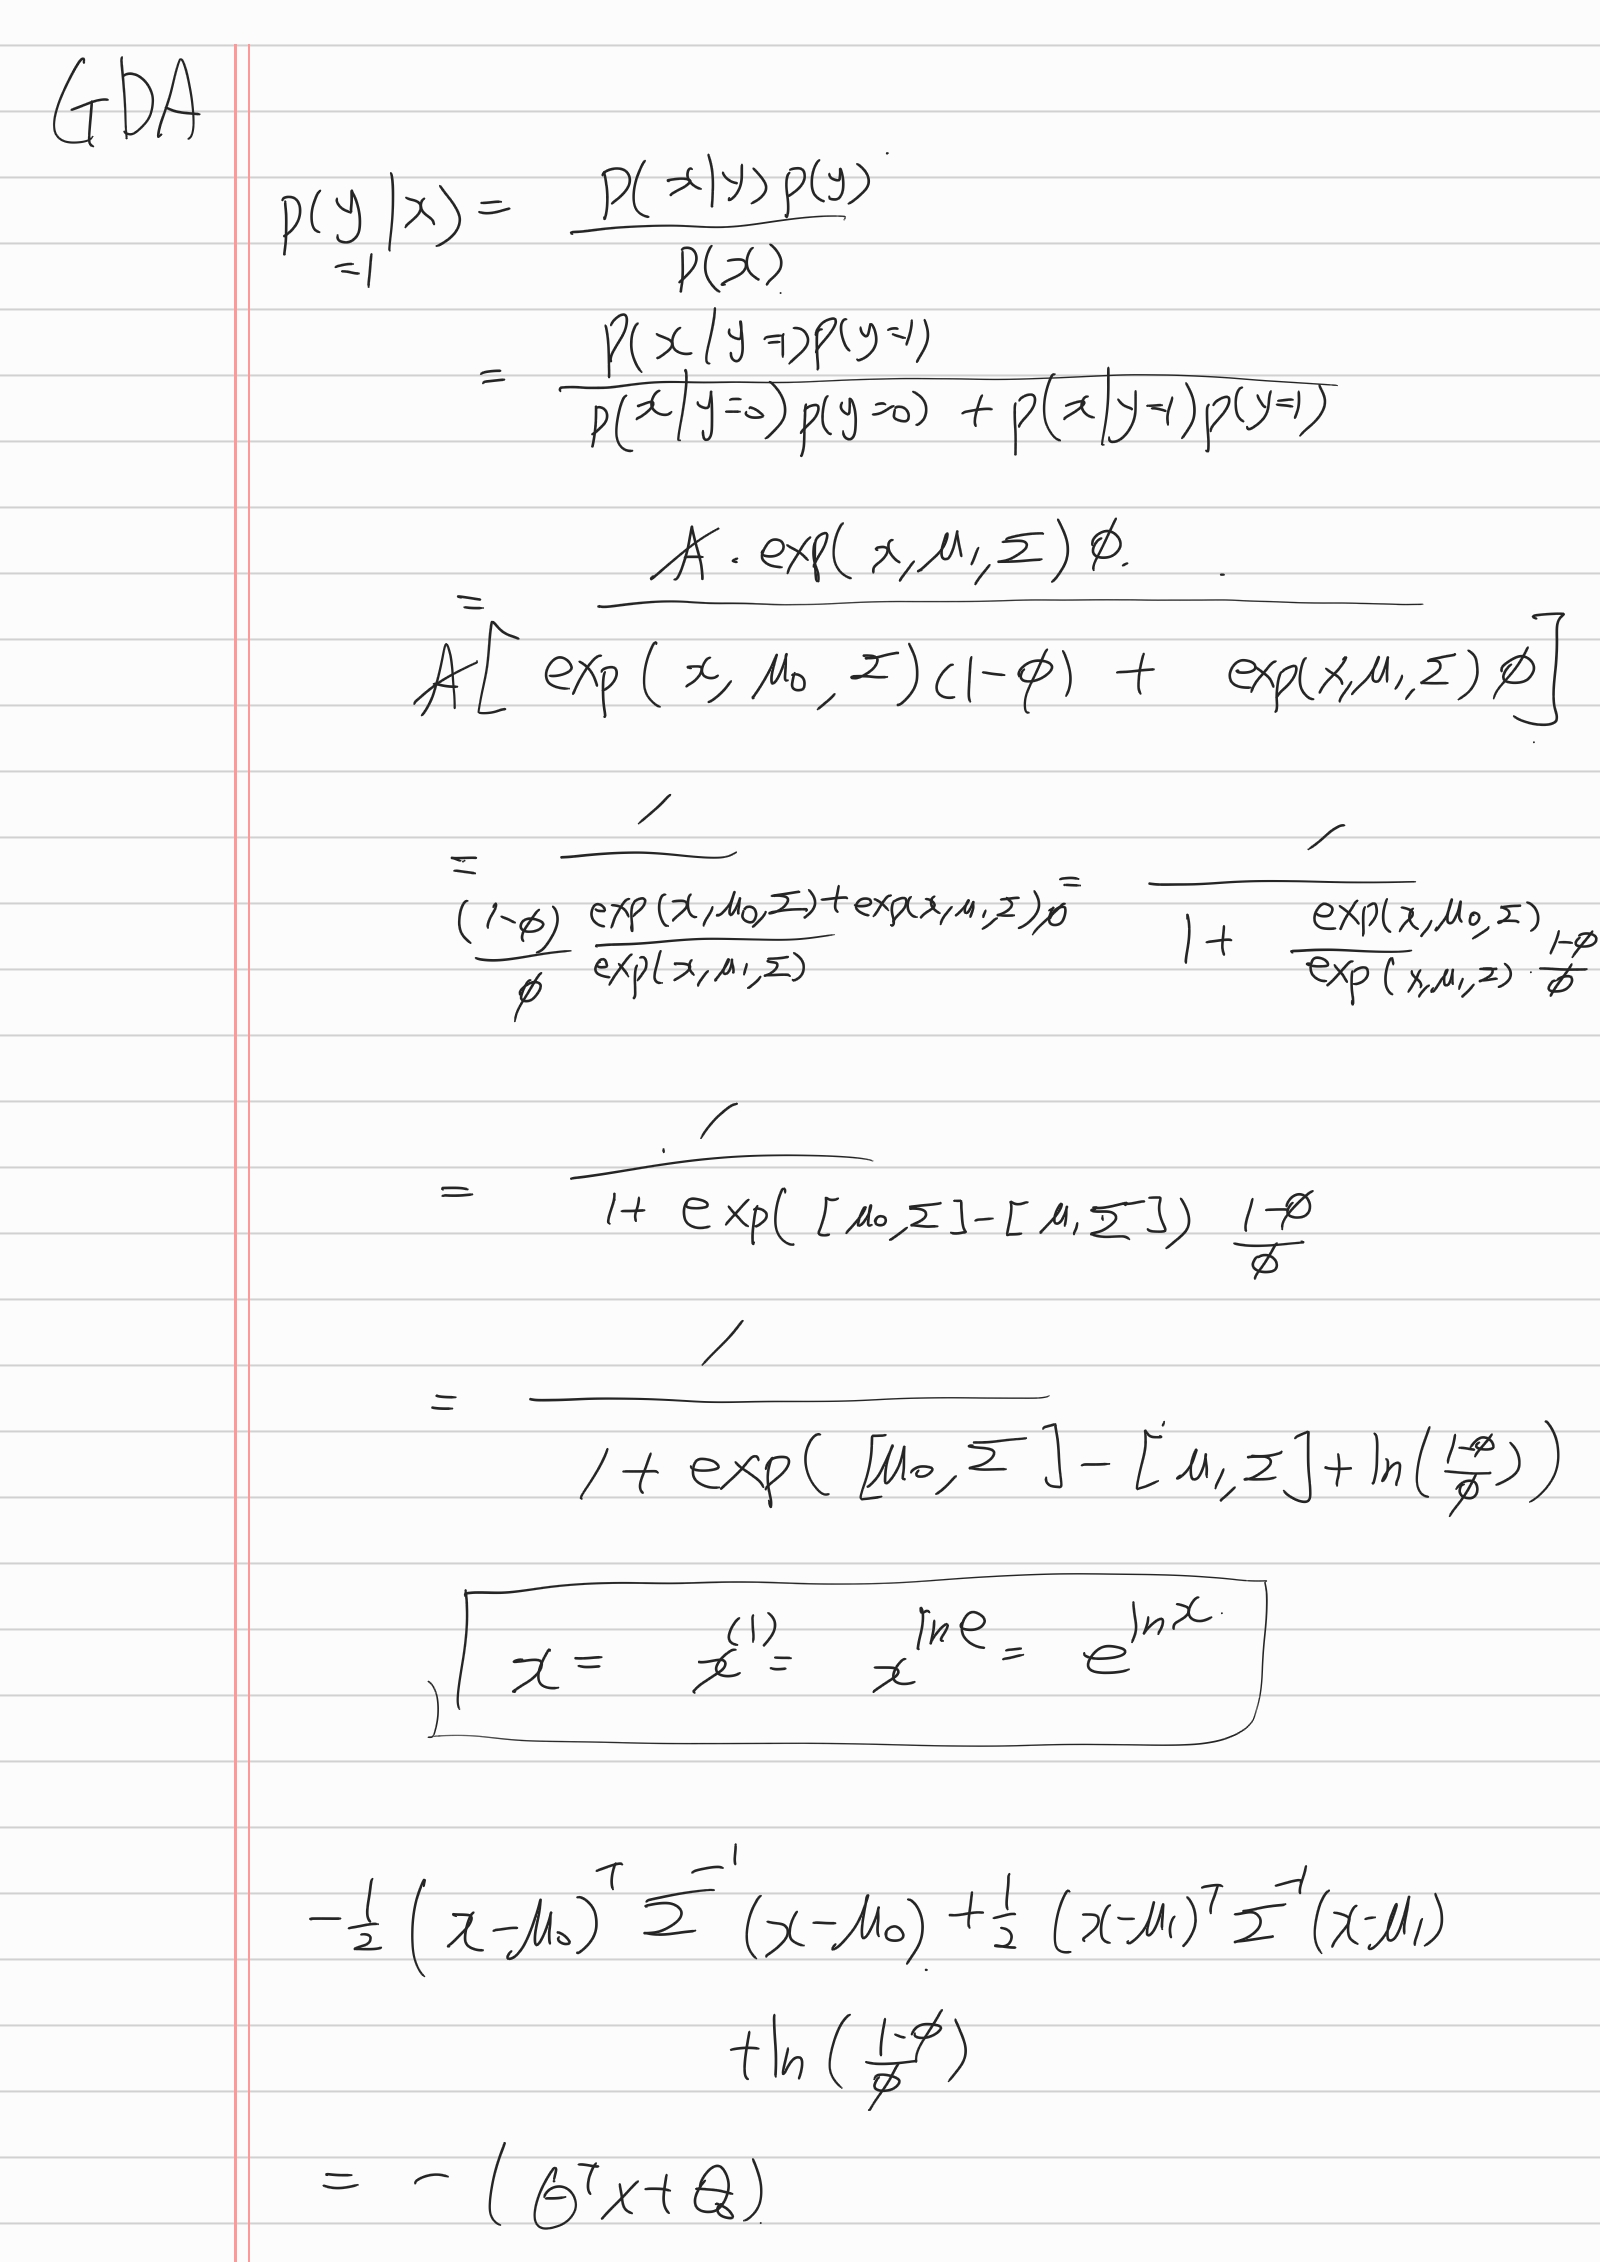 GDA
p(y=1|x) = p(x|y)p(y) / p(x)
= p(x|y=1)p(y=1) / p(x|y=0)p(y=0) + p(x|y=1)p(y=1)
= A. exp(x,μ1,Σ)ϕ. / A[exp(x,μ0,Σ)(1-ϕ) + exp(x,μ1,Σ)ϕ]
= 1 / (1-ϕ)/ϕ exp(x,μ0,Σ)+exp(x,μ1,Σ)ϕ / exp(x,μ1,Σ) = 1 / 1+ exp(x,μ0,Σ) / exp(x,μ1,Σ) · 1-ϕ/ϕ
= 1 / 1+ exp([μ0,Σ]-[μ1,Σ]) 1-ϕ/ϕ
= 1 / 1+exp([μ0,Σ]-[μ1,Σ]+ln(1-ϕ/ϕ))
x = x^(1) = x^ln e = e^ln x
-1/2 (x-μ0)^T Σ^-1 (x-μ0) + 1/2 (x-μ1)^T Σ^-1 (x-μ1)
+ln(1-ϕ/ϕ)
= -(θ^T x+θ0)